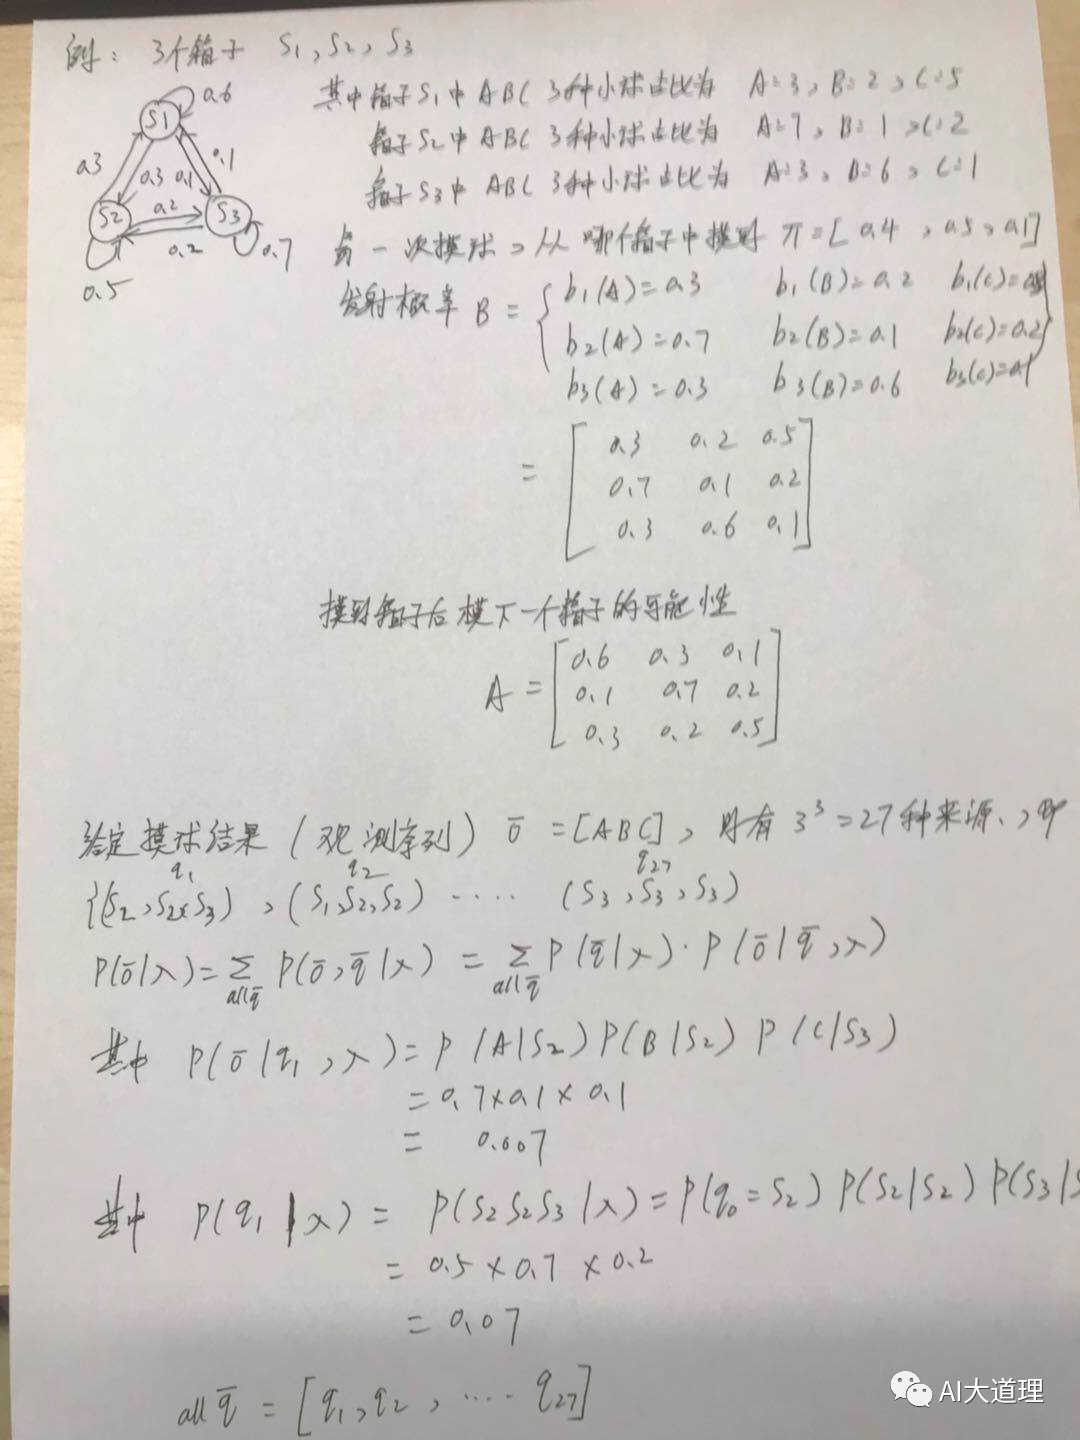 例: 3个箱子 S1, S2, S3
其中箱子S1中ABC 3种小球占比为 A=3, B=2, C=5
箱子S2中ABC 3种小球占比为 A=7, B=1, C=2
箱子S3中ABC 3种小球占比为 A=3, B=6, C=1
S1 0.6
0.3 0.3 0.1 0.1
S2 0.2 S3
0.2 0.7
0.5
一次摸球,从哪个箱子中摸到 π=[0.4, 0.5, 0.1]
发射概率 B = { b1(A)=0.3 b1(B)=0.2 b1(C)=
b2(A)=0.7 b2(B)=0.1 b2(C)=0.2 }
b3(A)=0.3 b3(B)=0.6 b3(C)=0.1
= [ 0.3 0.2 0.5
0.7 0.1 0.2
0.3 0.6 0.1 ]
摸到箱子后摸下一个箱子的可能性
A = [ 0.6 0.3 0.1
0.1 0.7 0.2
0.3 0.2 0.5 ]
给定摸球结果(观测序列) ō=[ABC], 则有3³=27种来源,即
q1 q2 q27
{(S2,S2,S3), (S1,S2,S2) .... (S3,S3,S3)
P(ō|λ)=Σ P(ō,q̄|λ) = Σ P(q̄|λ)·P(ō|q̄,λ)
all q̄ all q̄
其中 P(ō|q1,λ)=P(A|S2)P(B|S2)P(C|S3)
=0.7×0.1×0.1
= 0.007
其中 P(q1|λ) = P(S2S2S3|λ)=P(q0=S2)P(S2|S2)P(S3|S
= 0.5×0.7×0.2
= 0.07
all q̄ = [q1, q2, .... q27]
AI大道理